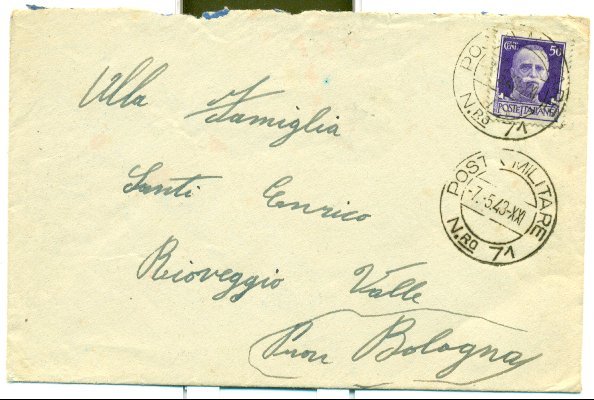 CENT. 50
POSTE ITALIANE
POSTA MILITARE
N.RO 71
POSTA MILITARE
-7.5.43-XXI
N.RO 71
Alla Famiglia
Santi Enrico
Rioveggio Valle
Prov Bologna